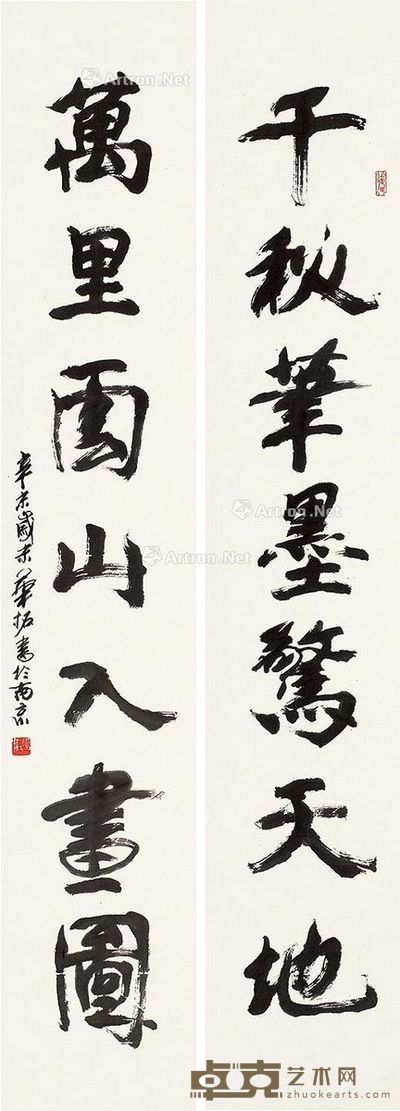 千秋筆墨驚天地
萬里雲山入畫圖
辛未歲末華拓書於南京
Artron.Net
Artron.Net
Artron.Net
Artron.Net
卓克艺术网
zhuokearts.com